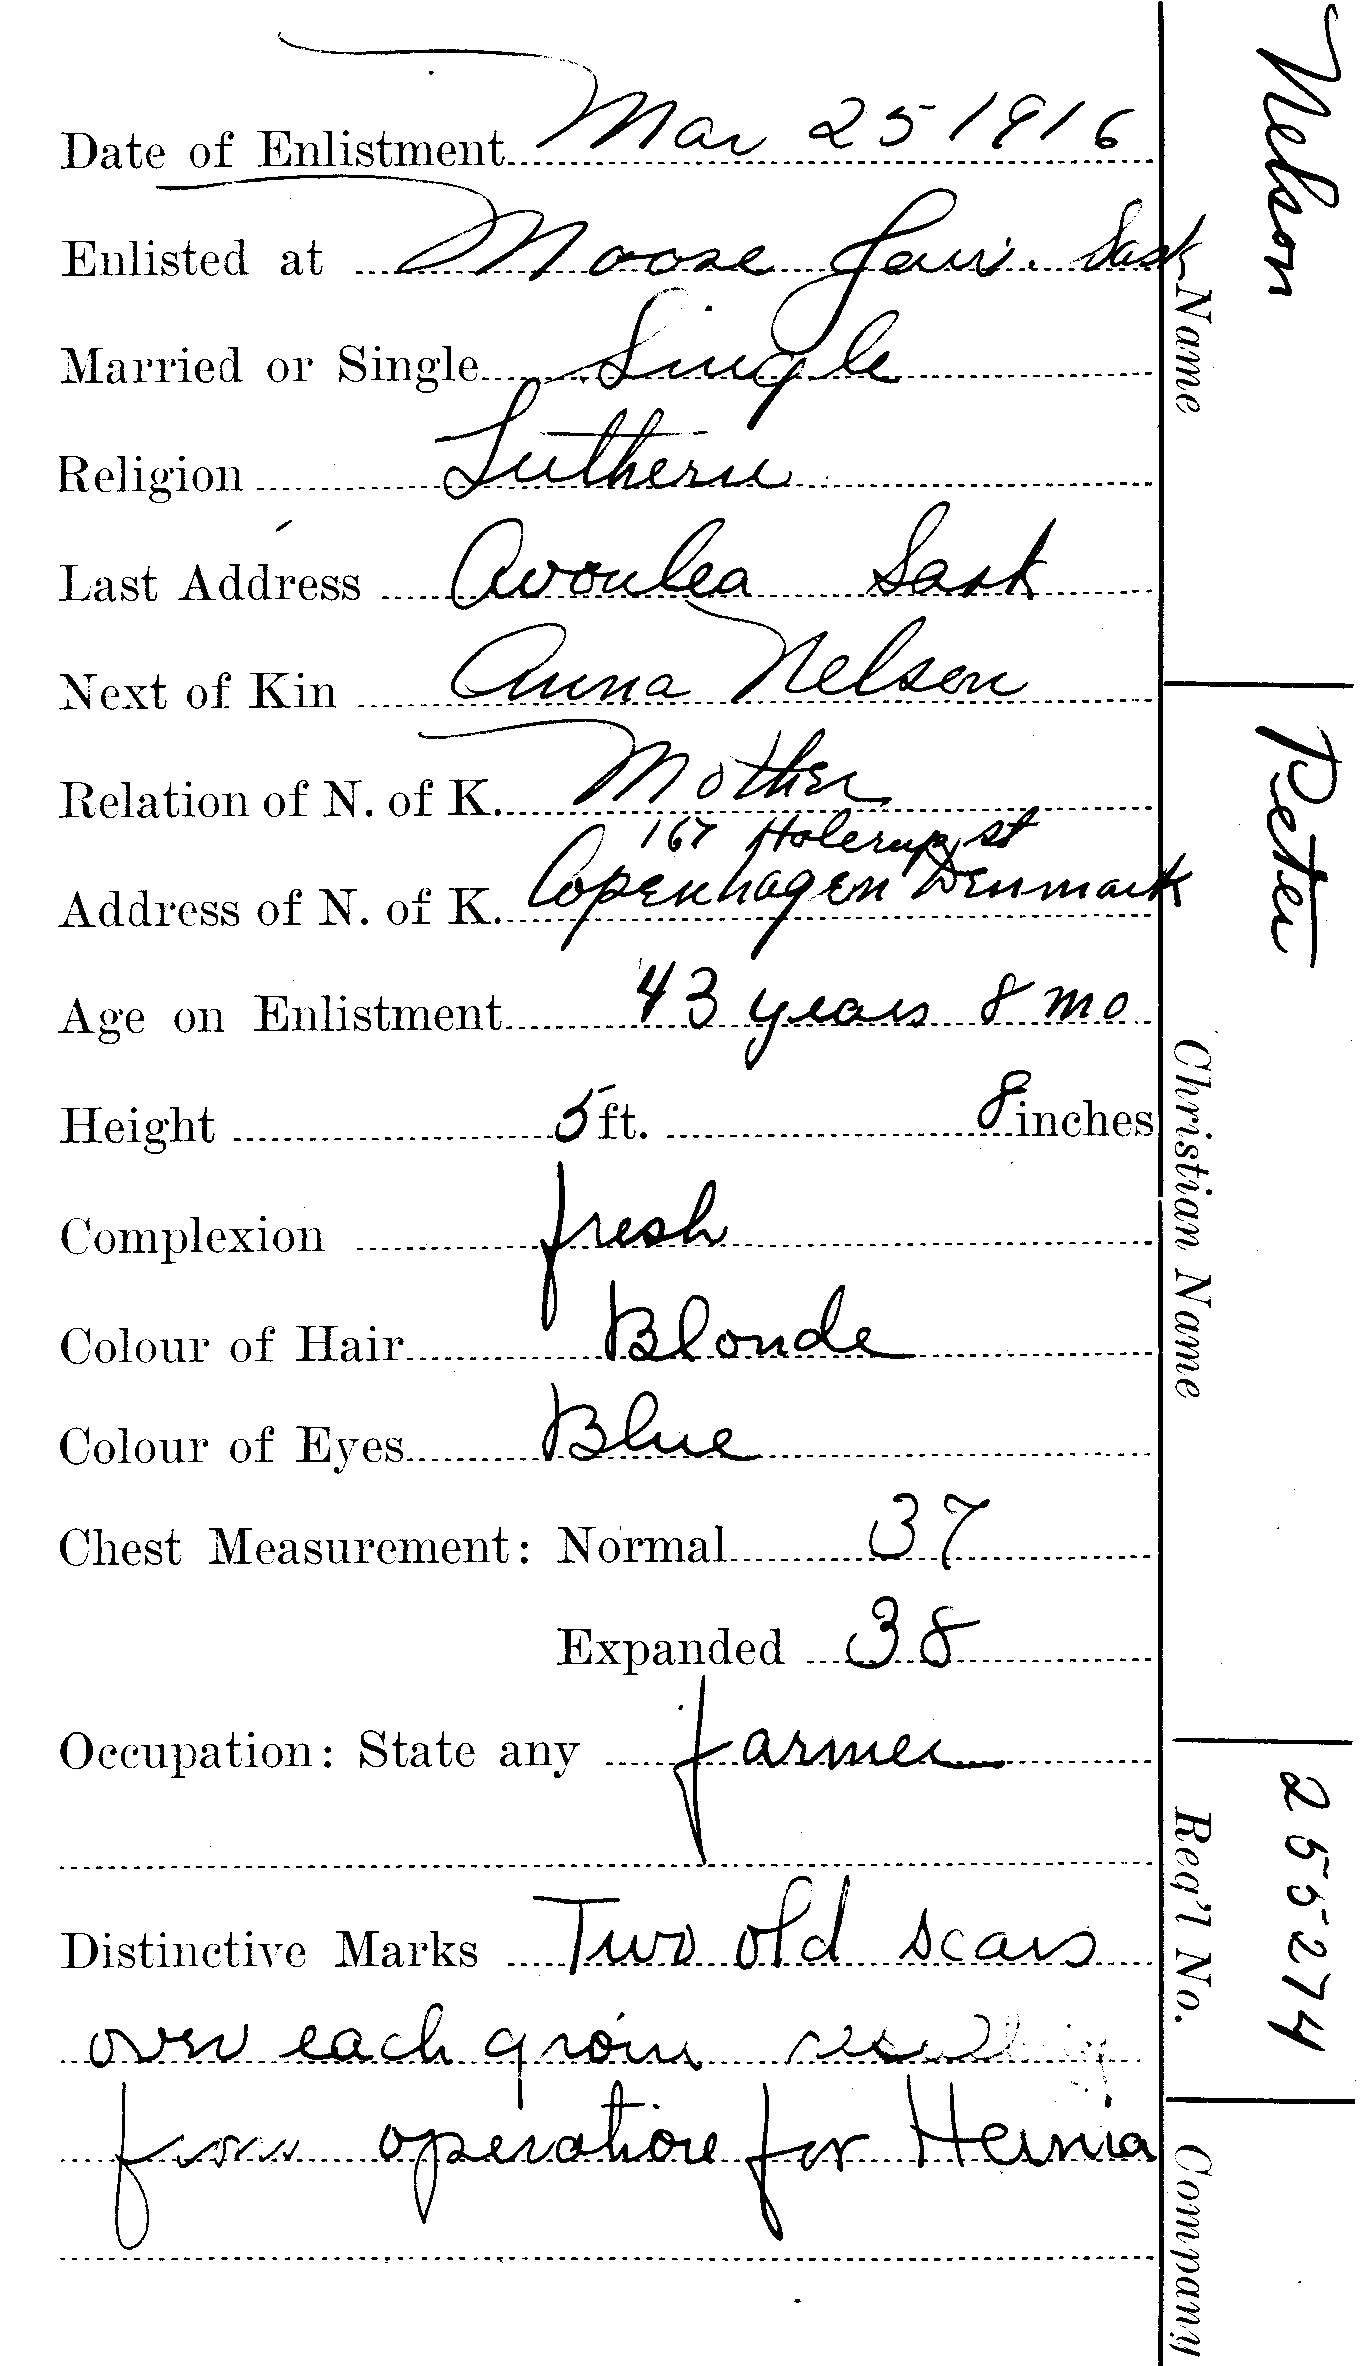 Date of Enlistment Mar 25 1916
Enlisted at Moose Jaw. Sask
Married or Single Single
Religion Luthern
Last Address Avonlea Sask
Next of Kin Anna Nelson
Relation of N. of K. Mother
167 Holerup st
Address of N. of K. Copenhagen Denmark
Age on Enlistment 43 years 8 mo
Height 5 ft. 8 inches
Complexion fresh
Colour of Hair Blonde
Colour of Eyes Blue
Chest Measurement: Normal 37
Expanded 38
Occupation: State any farmer
Distinctive Marks Two old scars
over each groin resulting
from operation for Hernia
Nelson
Name
Peter
Christian Name
255274
Reg'l No.
Company